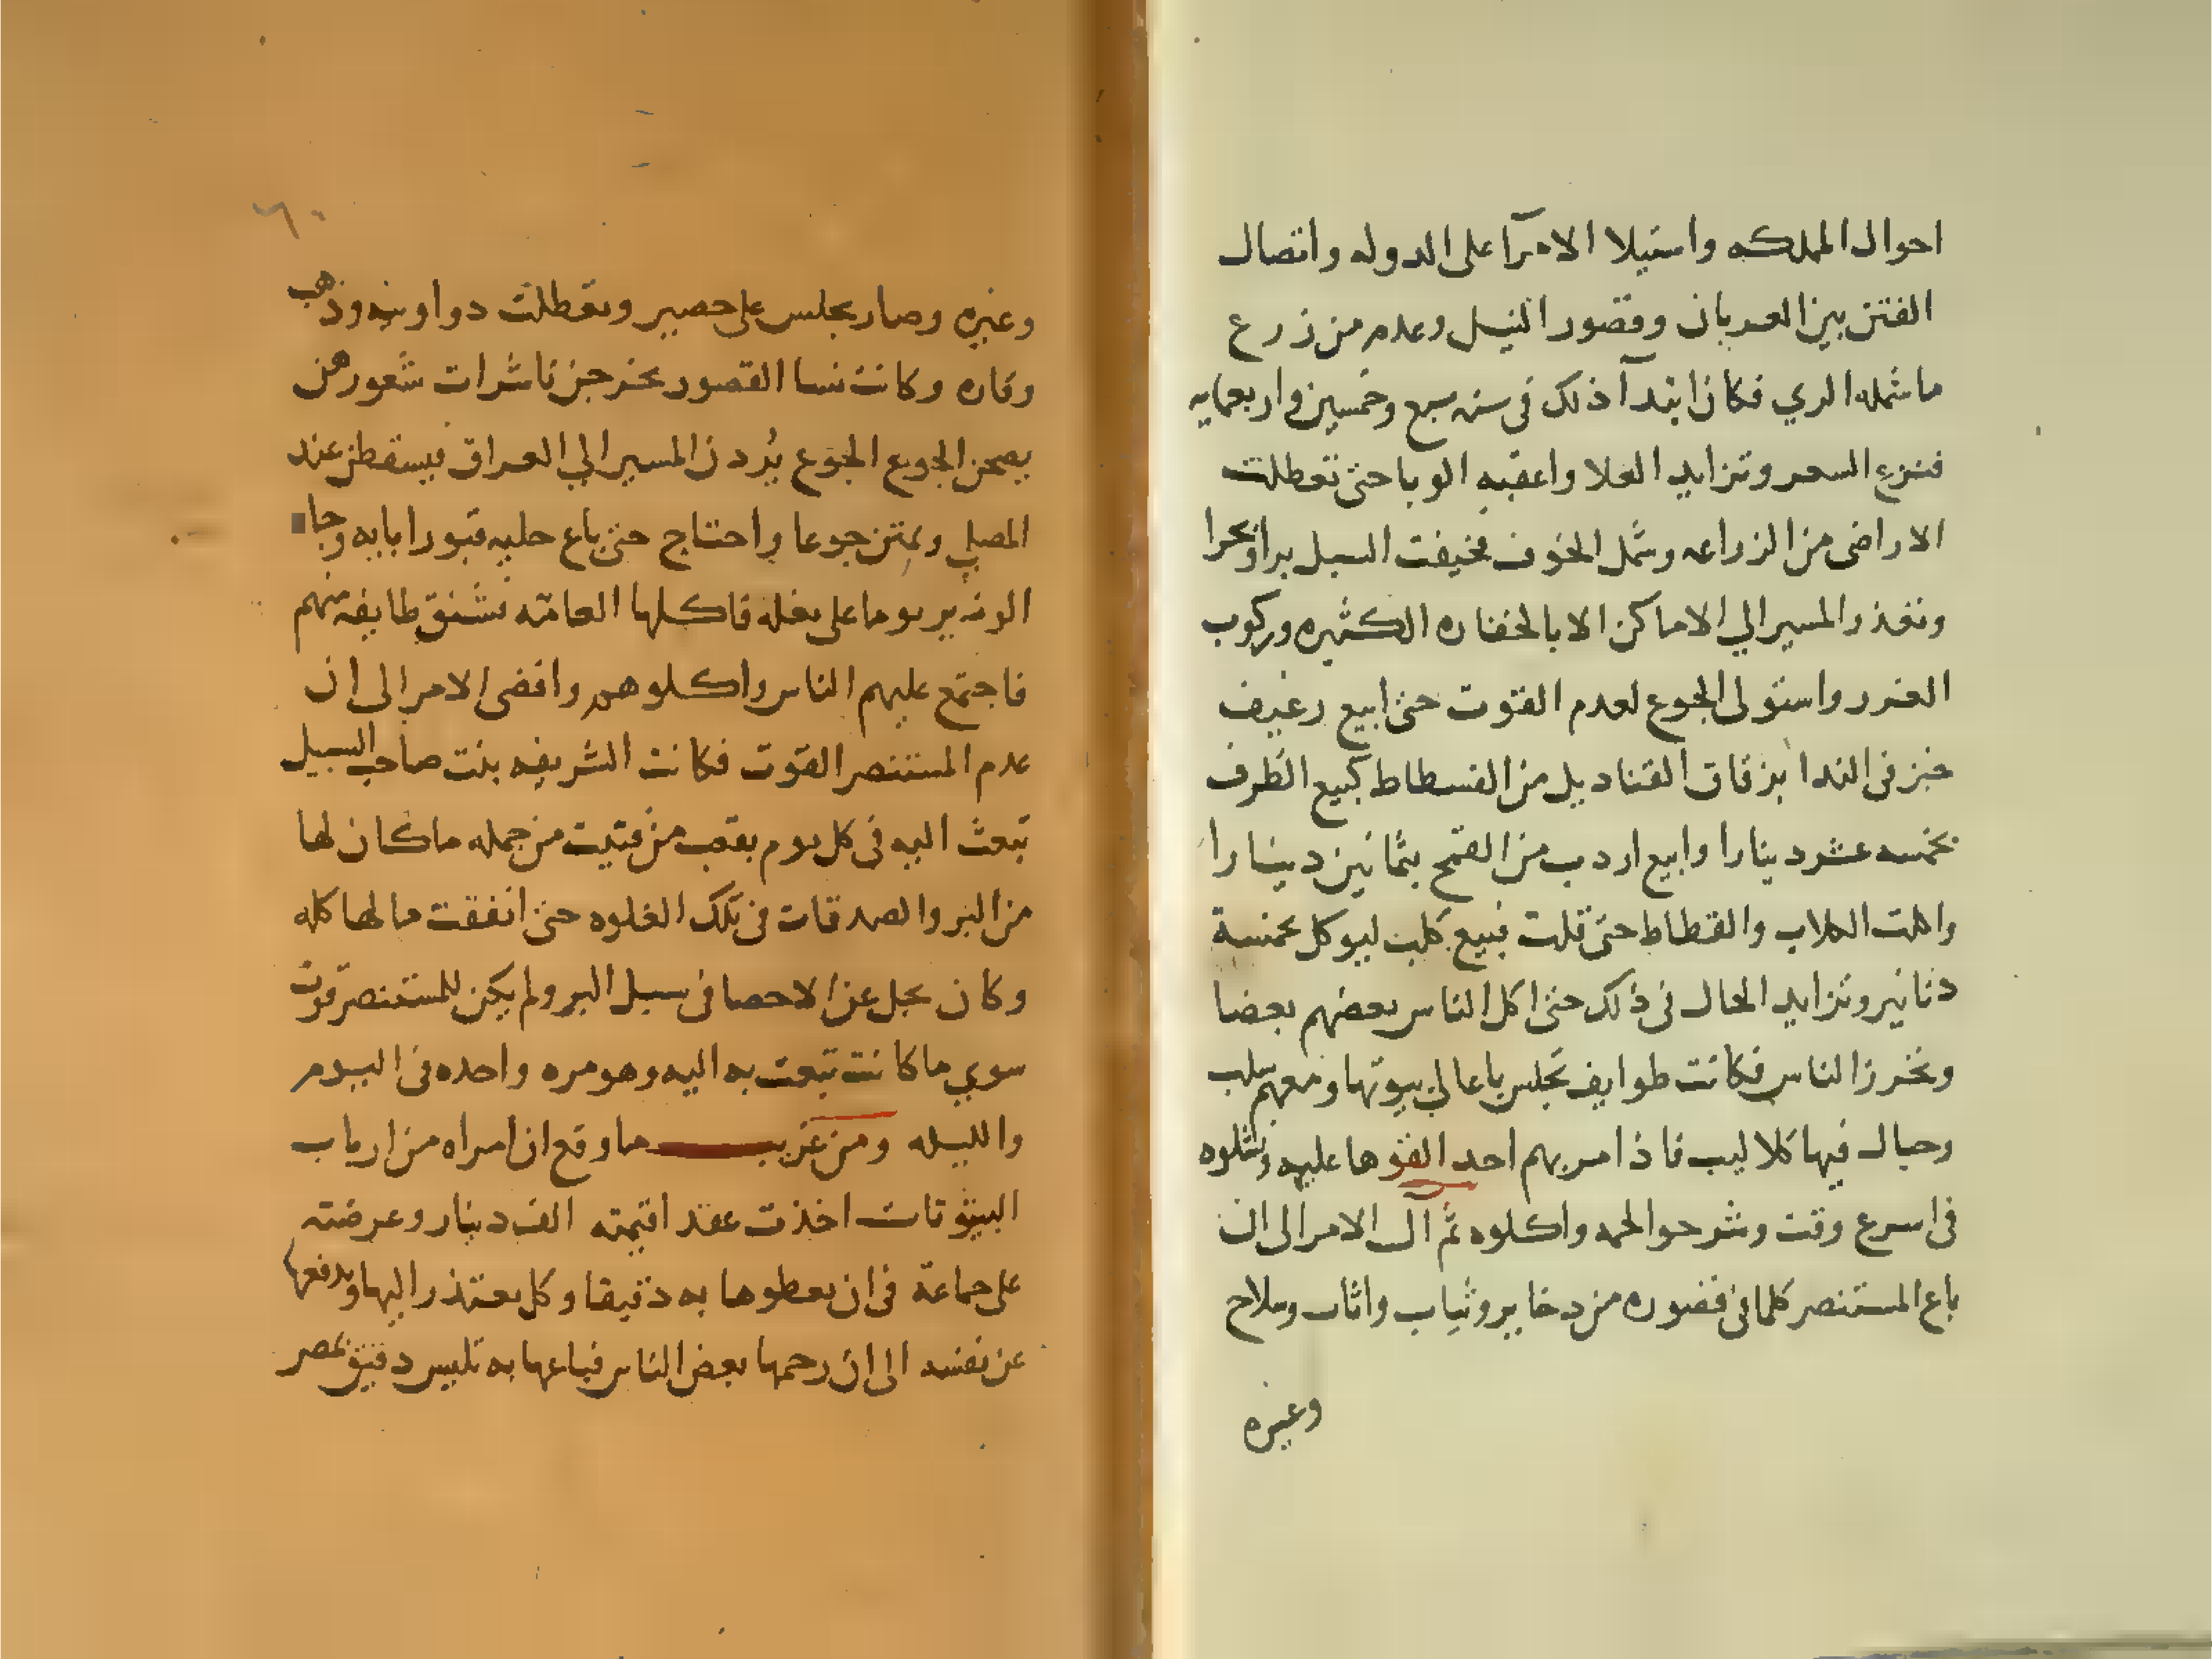 احوال المملكه واستيلا الامرآ على الدوله واتصال
الفتن بين العربان وقصور النيل وعدم من زرع
ما شمله الري فكان ابتدآ ذلك في سنه سبع وخمسين واربعمايه
فنزع السعر وتزايد الغلا واعقبه الوبا حتى تعطلت
الاراضى من الزراعه وشمل الخوف فخيفت السبل برا وبحرا
وتعذر المسير الي الاماكن الا بالخفاره الكثيره وركوب
الغرر واستولى الجوع لعدم القوت حتى ابيع رغيف
خبز فى الندا بزقاق القناديل من الفسطاط كبيع الطرف
بخمسه عشر دينارا وابيع اردب من القمح بثمانين دينارا
واكلت الكلاب والقطاط حتى قلت فبيع كلب ليوكل بخمسة
دنانير وتزايد الحال فى ذلك حتى اكل الناس بعضهم بعضا
وتحرز الناس فكانت طوايف تجلس باعالي بيوتها ومعهم سلب
وحبال فيها كلاليب فاذا مر بهم احد القوها عليه ونشلوه
فى اسرع وقت وشرحوا لحمه واكلوه ثم آل الامر الى ان
باع المستنصر كلما فى قصوره من دخاير وثياب واثاث وسلاح
وغيره
٦٠
وغيره وصار يجلس على حصير وتعطلت دواوينه وذهب
وقاره وكانت نسا القصور تخرجن ناشرات شعورهن
يصحن الجوع الجوع يُردن المسير الي العراق فيسقطن عند
المصلي ويمتن جوعا واحتاج حتى باع حليه قبور ابايه وجا
الوزير يوما على بغله فاكلها العامه فشنق طايفه منهم
فاجتمع عليهم الناس واكلوهم وافضى الامر الى ان
عدم المستنصر القوت فكانت الشريفه بنت صاحب السبيل
تبعث اليه فى كل يوم بقعب من فتيت من جمله ما كان لها
من البر والصدقات فى تلك الغلوه حتى انفقت مالها كله
وكان يجل عن الاحصا فى سبيل البر ولم يكن للمستنصر قوت
سوي ما كانت تبعث به اليه وهو مره واحده فى اليوم
والليله ومن غريب ما وقع ان امراه من ارباب
البيوتات اخذت عقدا قيمته الف دينار وعرضته
على جماعة فى ان يعطوها به دقيقا وكل يعتذر اليها ويدفعها
عن نفسه الى ان رحمها بعض الناس فباعها به تليس دقيق بمصر